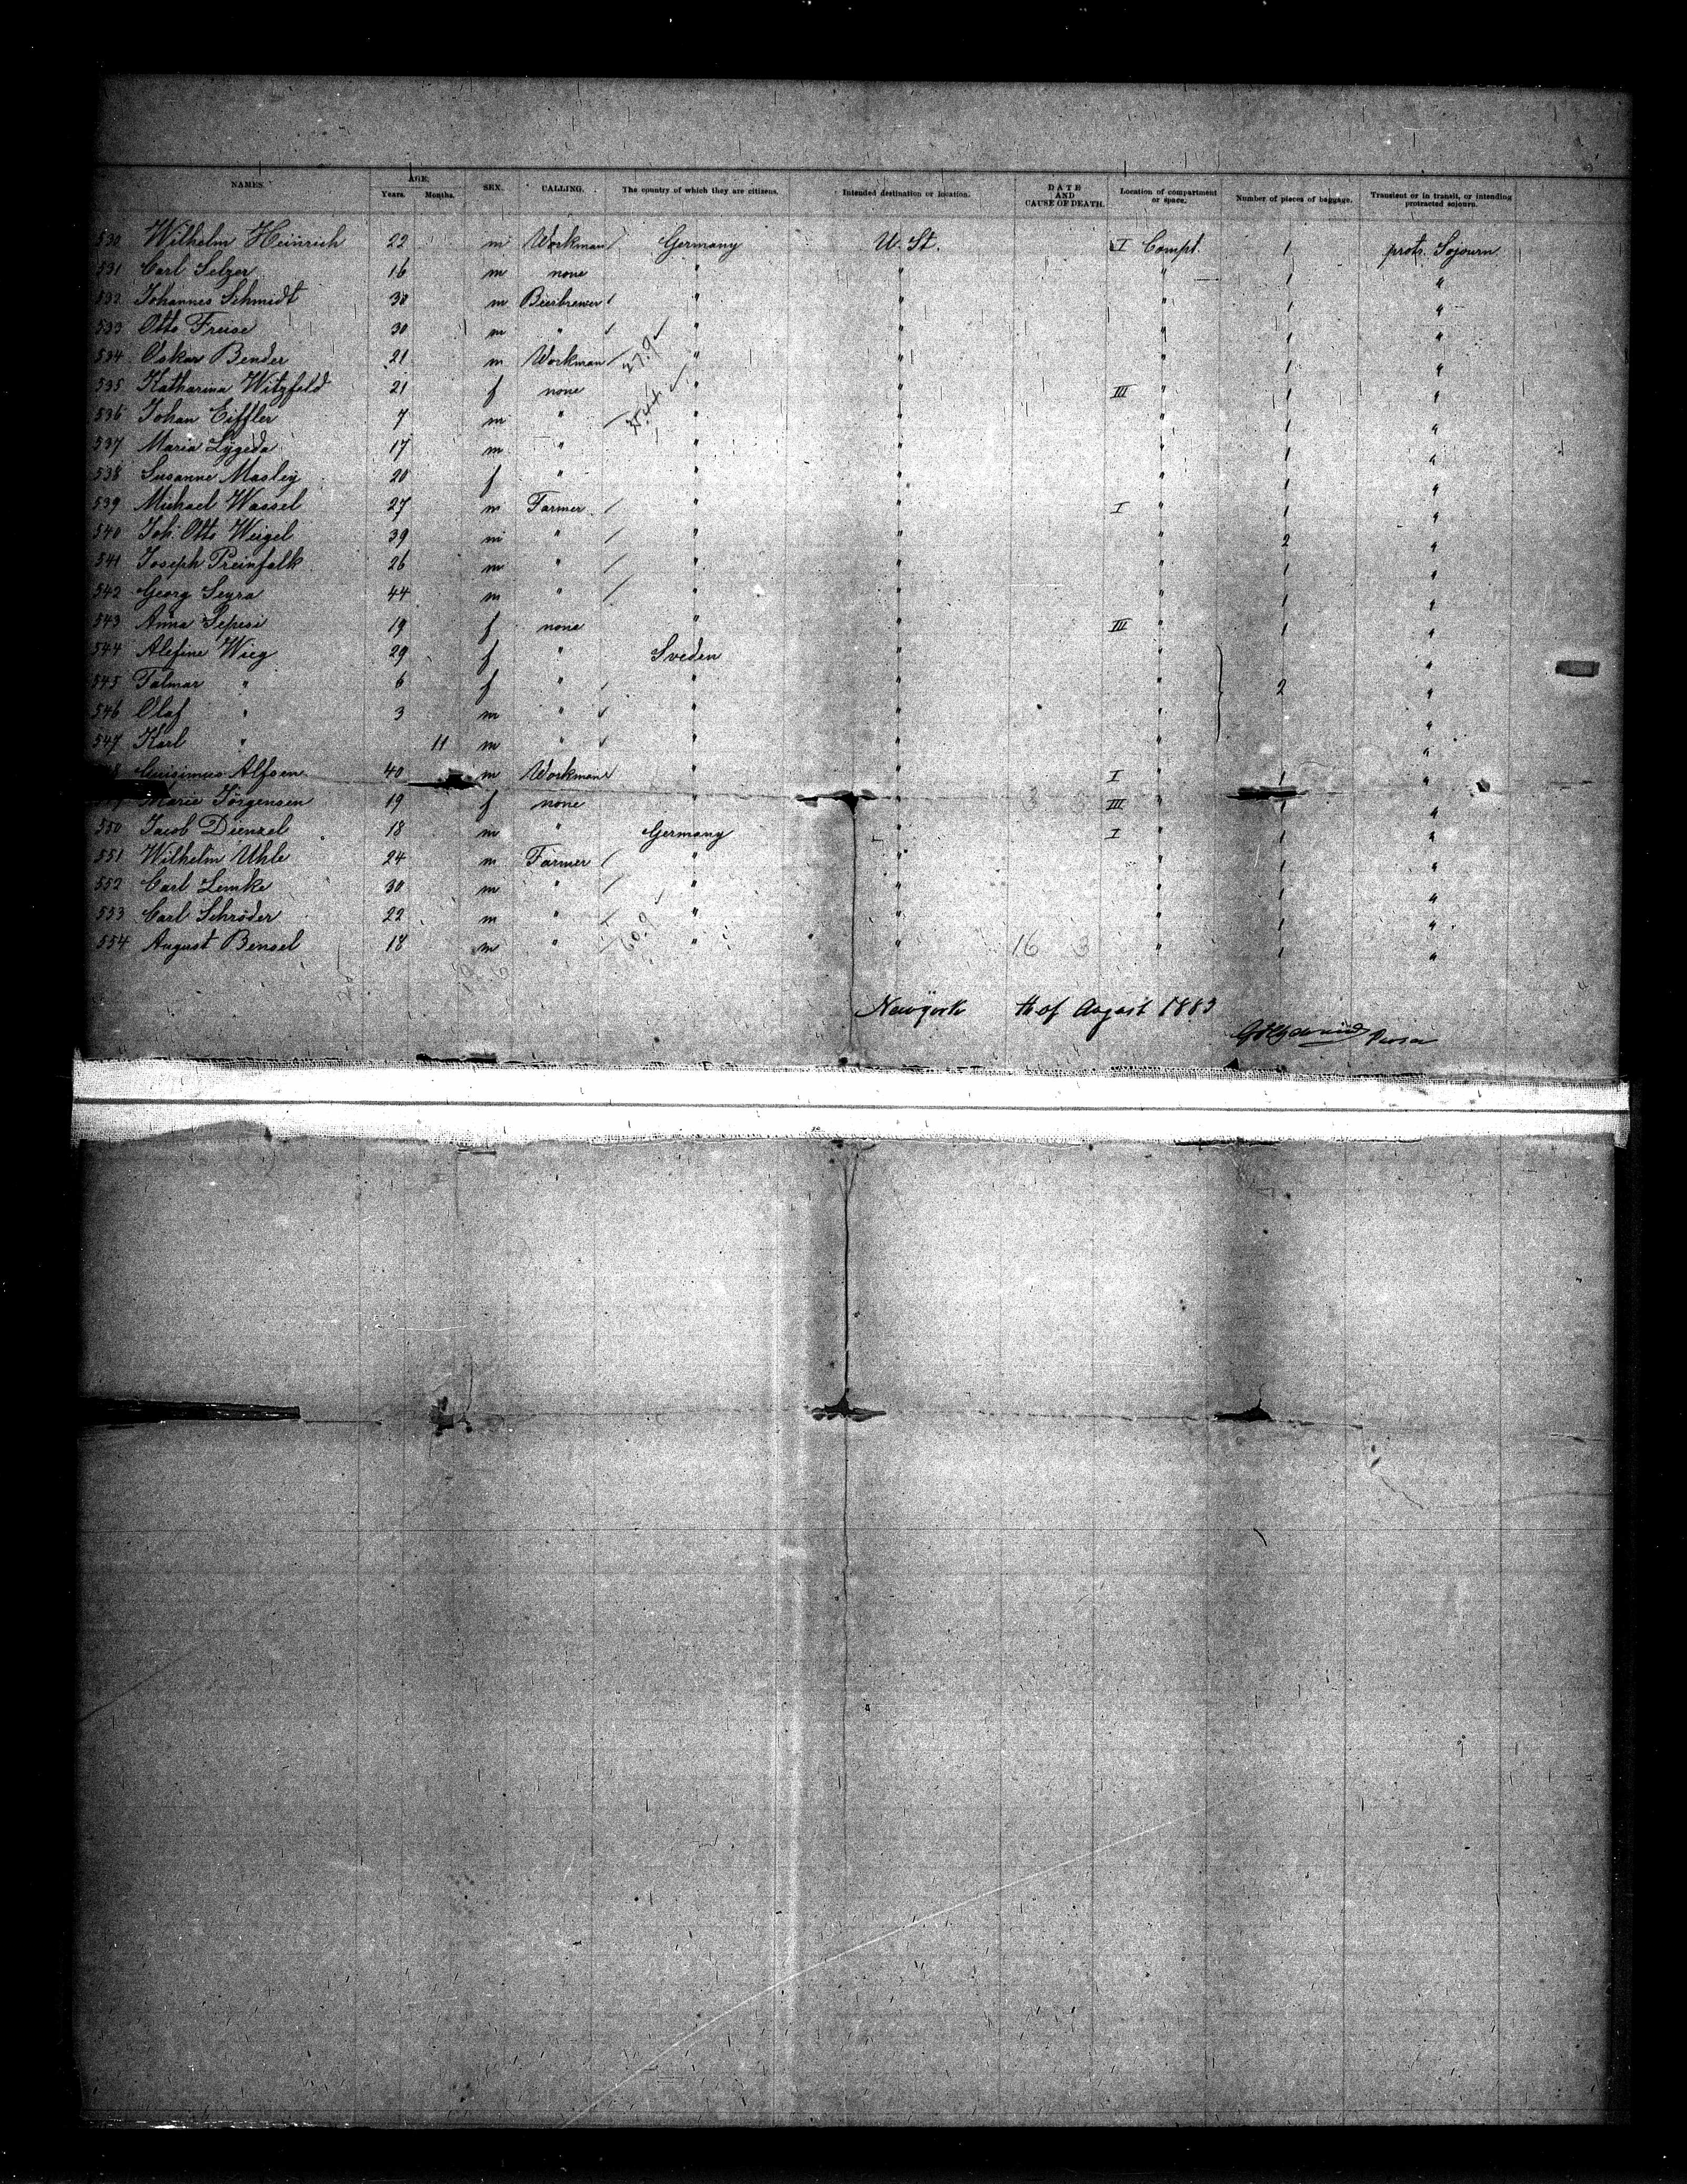 NAMES. AGE. Years. Months. SEX. CALLING. The country of which they are citizens. Intended destination or location. DATE AND CAUSE OF DEATH. Location of compartment or space. Number of pieces of baggage. Transient or in transit, or intending protracted sojourn.
530 Wilhelm Heinrich 22 m Workman Germany U. St. I Compt. 1 protr. Sojourn
531 Carl Selzer 16 m none " " " 1 "
532 Johannes Schmidt 30 m Bierbrewer " " " 1 "
533 Otto Freise 30 m " " " " 1 "
534 Oskar Bender 21 m Workman " " " 1 "
535 Katharina Witzfeld 21 f none " " III " 1 "
536 Johan Eiffler 7 m " " " " 1 "
537 Maria Lygeda 17 m " " " " 1 "
538 Susanne Masley 20 f " " " " 1 "
539 Michael Wassel 27 m Farmer " " I " 1 "
540 Joh. Otto Weigel 39 m " " " " 2 "
541 Joseph Preinfalk 26 m " " " " 1 "
542 Georg Seyra 44 m " " " " 1 "
543 Anna Sepesi 19 f none " " III " 1 "
544 Alefine Wieg 29 f " Sveden " " "
545 Talmar " 6 f " " " " 2 "
546 Olaf " 3 m " " " " "
547 Karl " 11 m " " " " "
Alfsen 40 m Workman " " I " 1 "
Marie Jörgensen 19 f none " " III " 1 "
550 Jacob Dienzel 18 m " Germany " I " 1 "
551 Wilhelm Uhle 24 m Farmer " " " 1 "
552 Carl Lemke 30 m " " " " 1 "
553 Carl Schröder 22 m " " " " 1 "
554 August Bensel 18 m " " " 16 3 " 1 "
Newyork th of August 1883